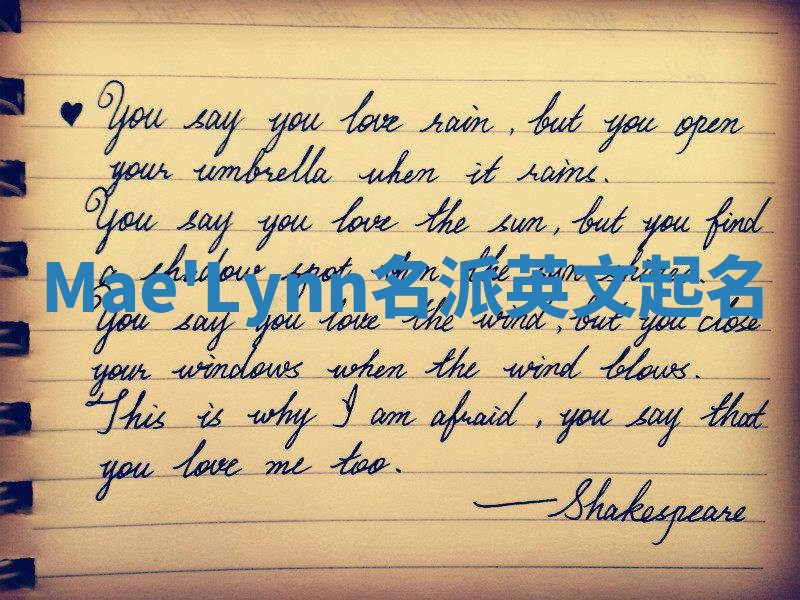 ♥ You say you love rain, but you open
your umbrella when it rains.
You say you love the sun, but you find
a shadow spot when the sun shines.
Mae'Lynn名派英文起名
You say you love the wind, but you close
your windows when the wind blows.
This is why I am afraid, you say that
you love me too.
—Shakespeare